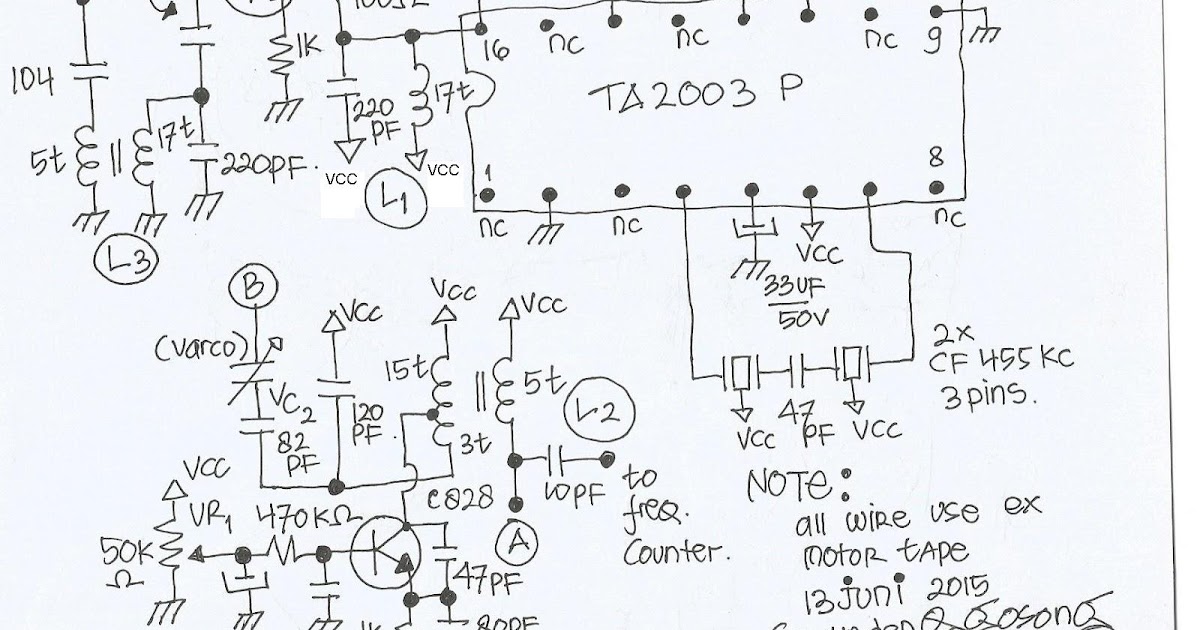 1K
16
nc
nc
nc
9
104
17t
TA2003 P
220
PF
17t
5t
220PF.
VCC
VCC
L1
1
8
nc
nc
nc
L3
VCC
33UF
50V
B
VCC
VCC
VCC
(varco)
15t
5t
2x
CF 455 KC
3 pins.
VC2
120
PF.
L2
82
PF
3t
VCC
47
PF
VCC
VCC
10PF
to
freq.
Counter.
C828
NOTE:
all wire use ex
motor tape
13 juni 2015
VR1
470KΩ
50K
Ω
A
47PF
1K
80PF